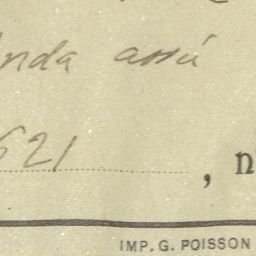 anda assú
621 , n
IMP. G. POISSON